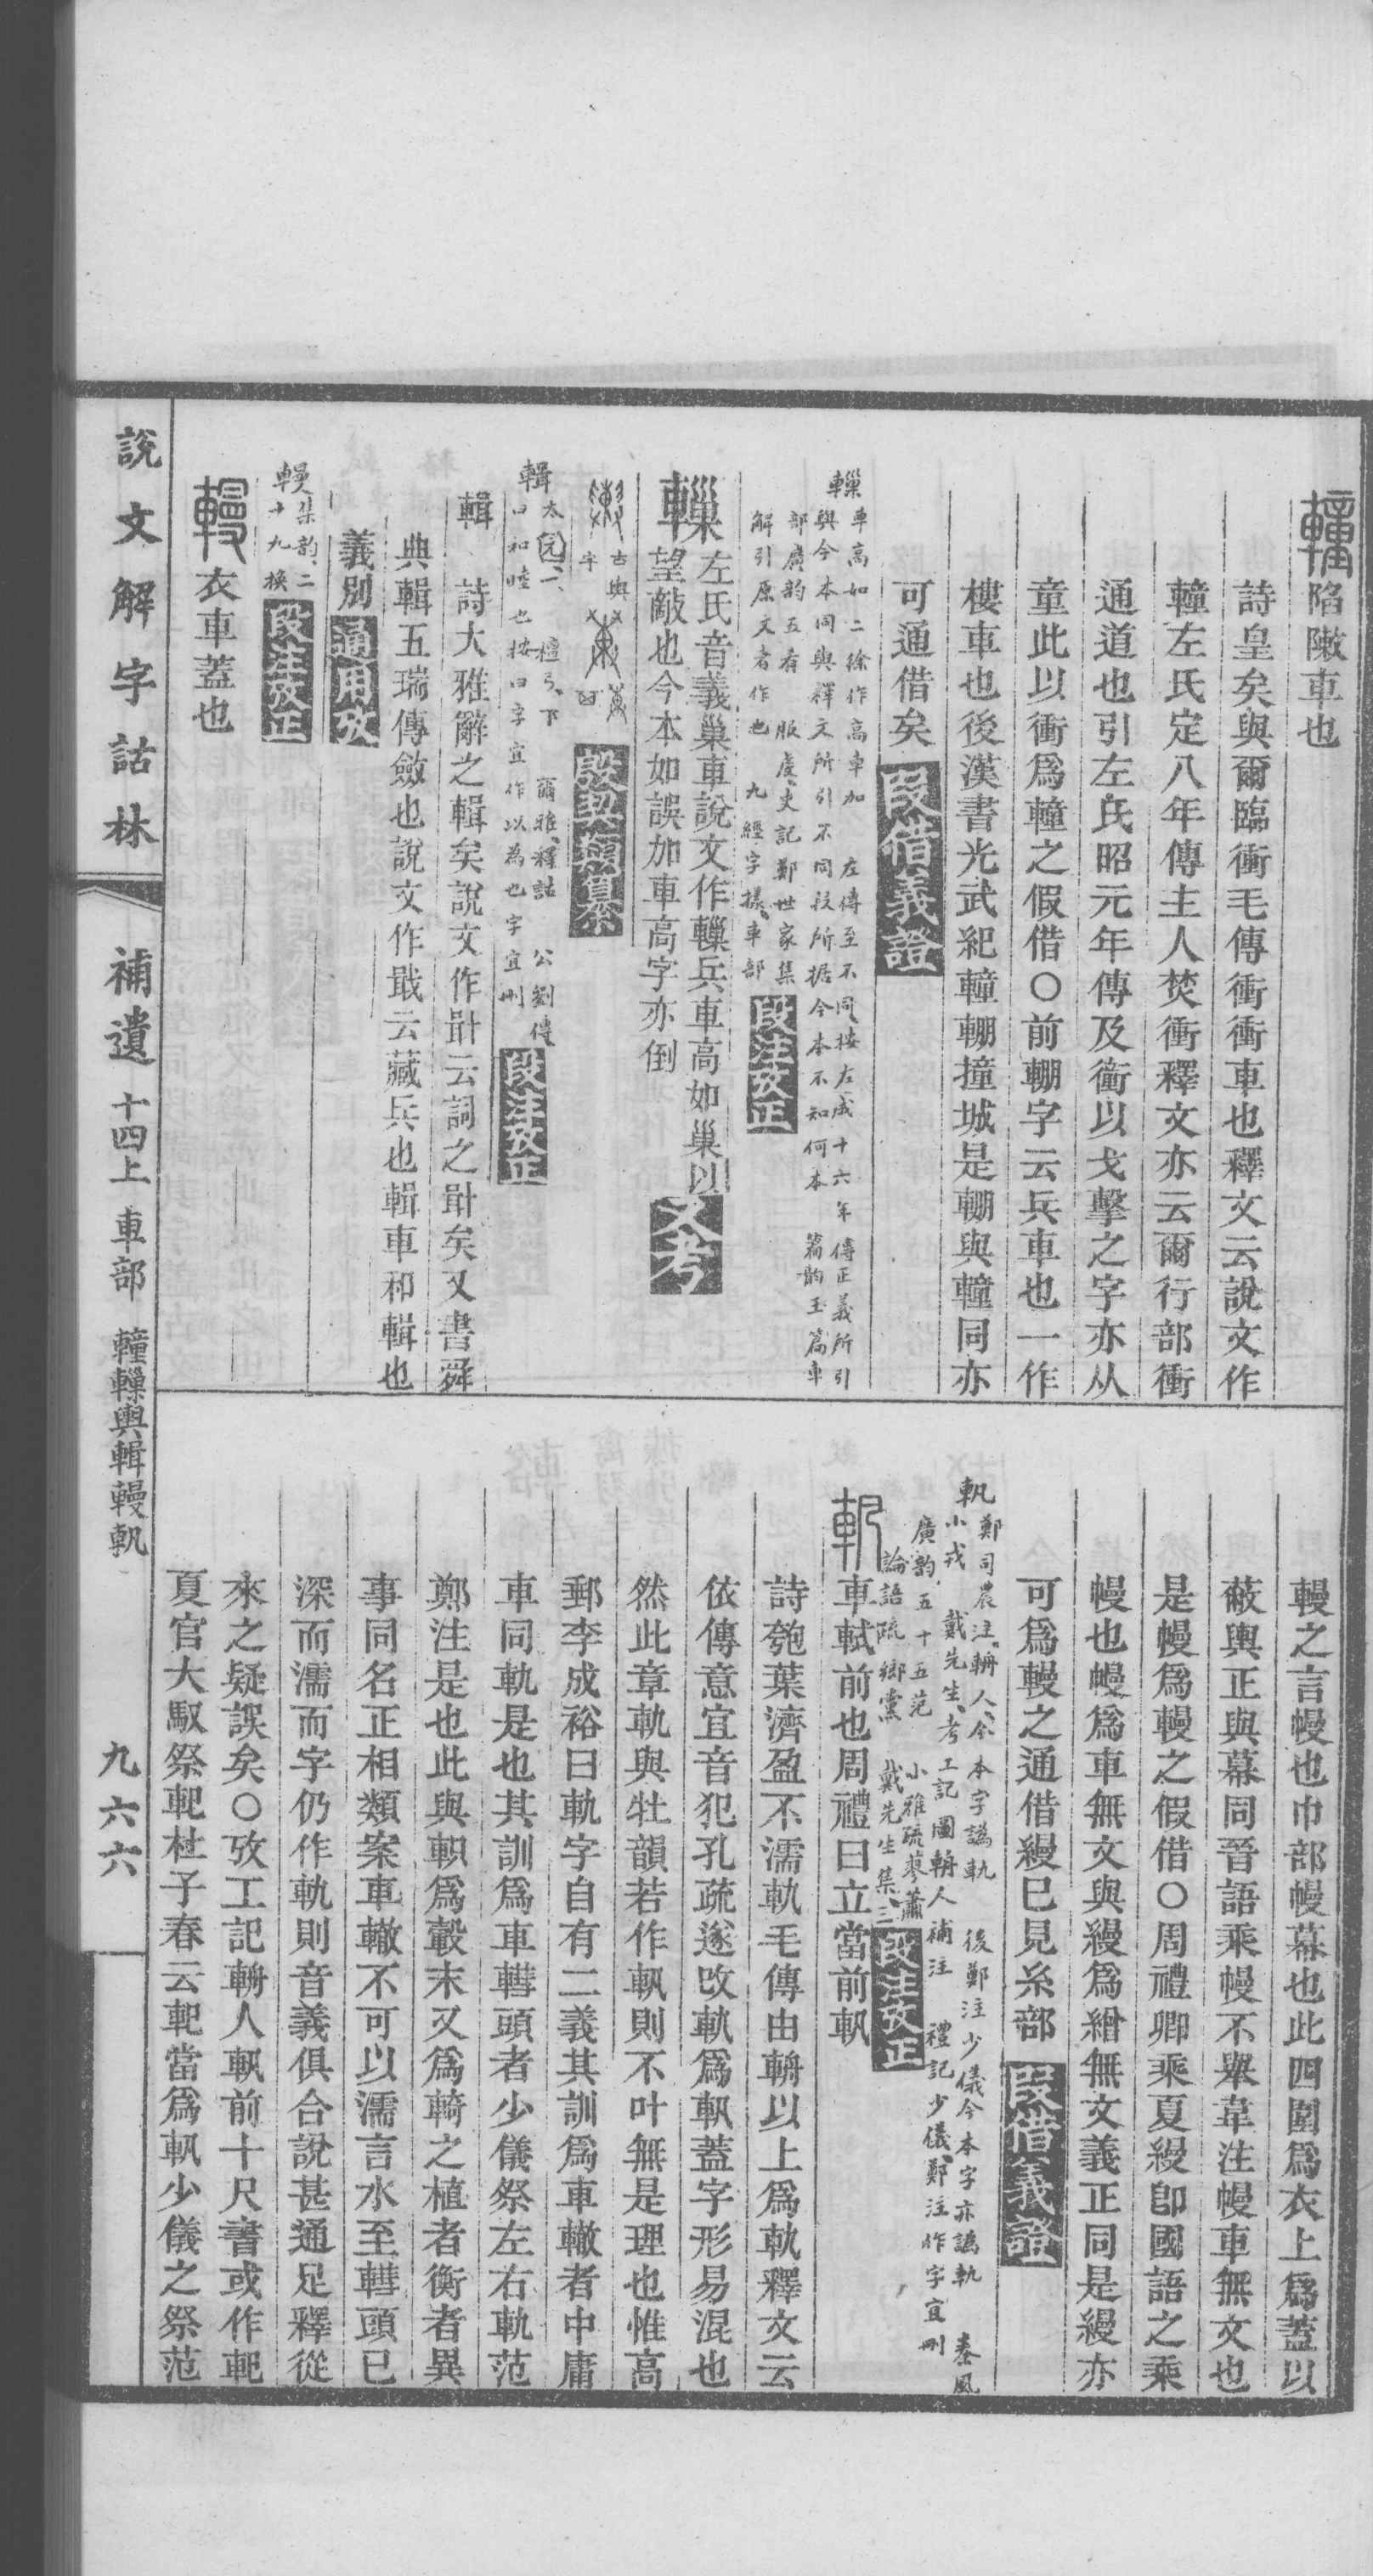 䡴陷敶車也
詩皇矣與爾臨衝毛傳衝衝車也釋文云說文作
䡴左氏定八年傳主人焚衝釋文亦云爾行部衝
通道也引左氏昭元年傳及衝以戈擊之字亦从
童此以衝爲䡴之假借〇前輣字云兵車也一作
樓車也後漢書光武紀䡴輣撞城是輣與䡴同亦
可通借矣 段借義證
轈車高如二徐作高車加 左傳至不同按左成十六年傳正義所引
與今本同與釋文所引不同段所据今本不知何本 篇韵玉篇車
部廣韵五肴 服虔史記鄭世家集
解引原文者作也 九經字㨾車部 段注攷正
轈左氏音義巢車說文作轈兵車高如巢以
望敵也今本如誤加車高字亦倒 又考
古輿字 段契類纂
輯太元一檀弓下 爾雅釋詁 公劉傳
曰和睦也按曰字宜作以為也字宜刪 段注攷正
輯 詩大雅辭之輯矣說文作卙云詞之卙矣又書舜
典輯五瑞傳斂也說文作戢云藏兵也輯車和輯也
義別 通用攷
䡬集韵二十九換 段注攷正
䡬衣車蓋也
說文解字詁林 補遺 十四上 車部 䡴轈輿輯䡬軓 九六六
䡬之言幔也巾部幔幕也此四圍爲衣上爲蓋以
蔽輿正與幕同晉語乘幔不舉韋注幔車無文也
是幔爲䡬之假借〇周禮卿乘夏縵卽國語之乘
幔也幔爲車無文與縵爲繒無文義正同是縵亦
可爲䡬之通借縵已見糸部 段借義證
軓鄭司農注輈人今本字譌軌 後鄭注少儀今本字亦譌軌 秦風
小戎 戴先生考工記圖輈人補注 禮記少儀鄭注作字宜刪
廣韵五十五范 小雅疏蓼蕭
論語疏鄉黨 戴先生集三 段注攷正
軓車軾前也周禮曰立當前軓
詩匏葉濟盈不濡軌毛傳由輈以上爲軌釋文云
依傳意宜音犯孔疏遂改軌爲軓蓋字形易混也
然此章軌與牡韻若作軓則不叶無是理也惟高
郵李成裕曰軌字自有二義其訓爲車轍者中庸
車同軌是也其訓爲車轊頭者少儀祭左右軌范
鄭注是也此與軹爲轂末又爲輢之植者衡者異
事同名正相類案車轍不可以濡言水至轊頭已
深而濡而字仍作軌則音義俱合說甚通足釋從
來之疑誤矣〇攷工記輈人軓前十尺書或作䡊
夏官大馭祭䡊杜子春云䡊當爲軓少儀之祭范